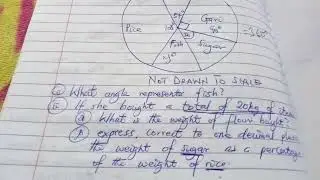 54°
Gari
90°
Rice
108°
=360°
Fish
Sugar
x°
NOT DRAWN TO SCALE
What angle represents fish?
If she bought a total of 20kg of
What is the weight of flour bought?
express, correct to one decimal place
the weight of sugar as a percentage
of the weight of rice.